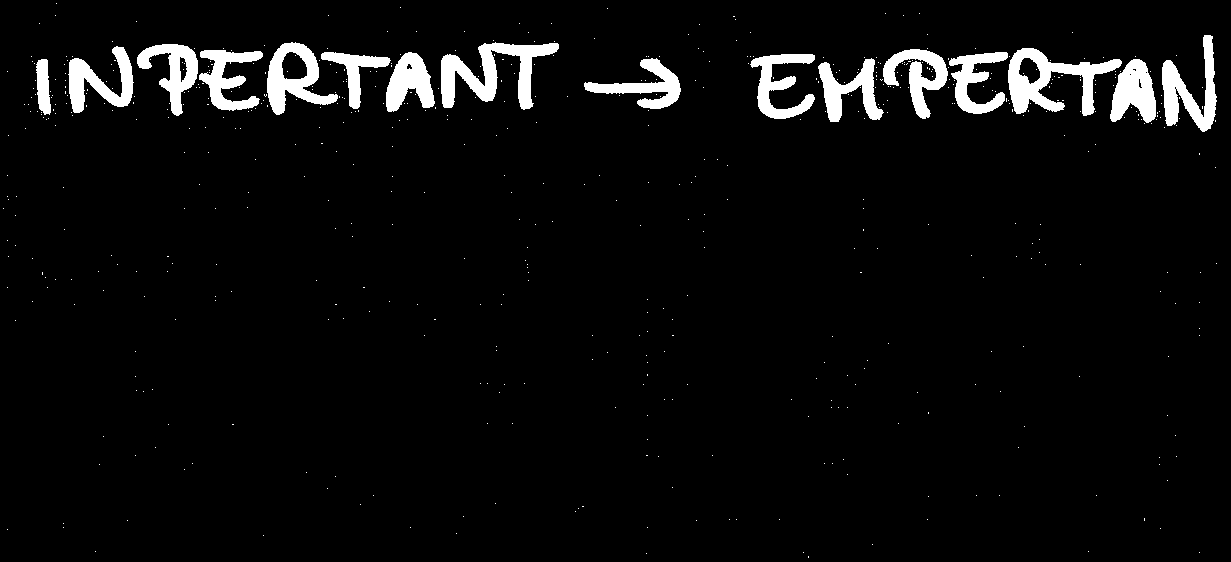 INPERTANT → EMPERTAN